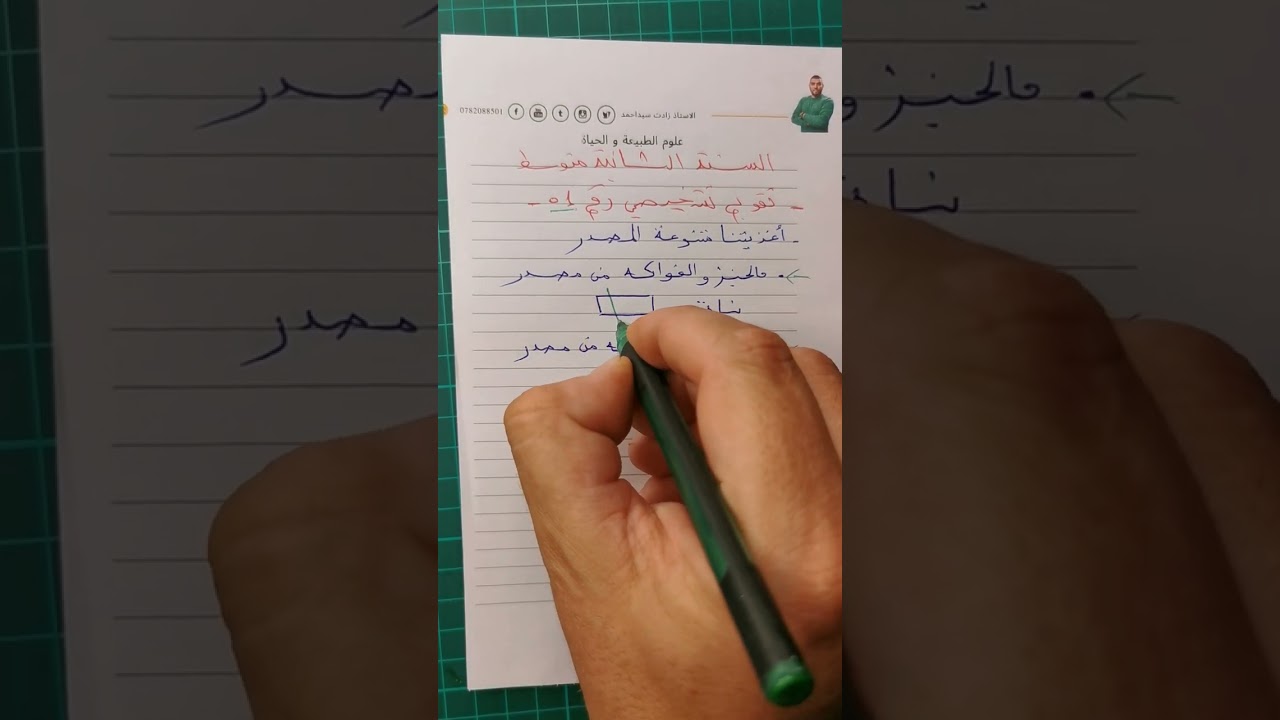 الاستاذ زادت سيداحمد 0782088501
علوم الطبيعة و الحياة
السنة الثانية متوسط
- تقويم تشخيصي رقم 01 -
- أغذيتنا متنوعة المصدر
• فالخبز والفواكه من مصدر
نباتي
من مصدر